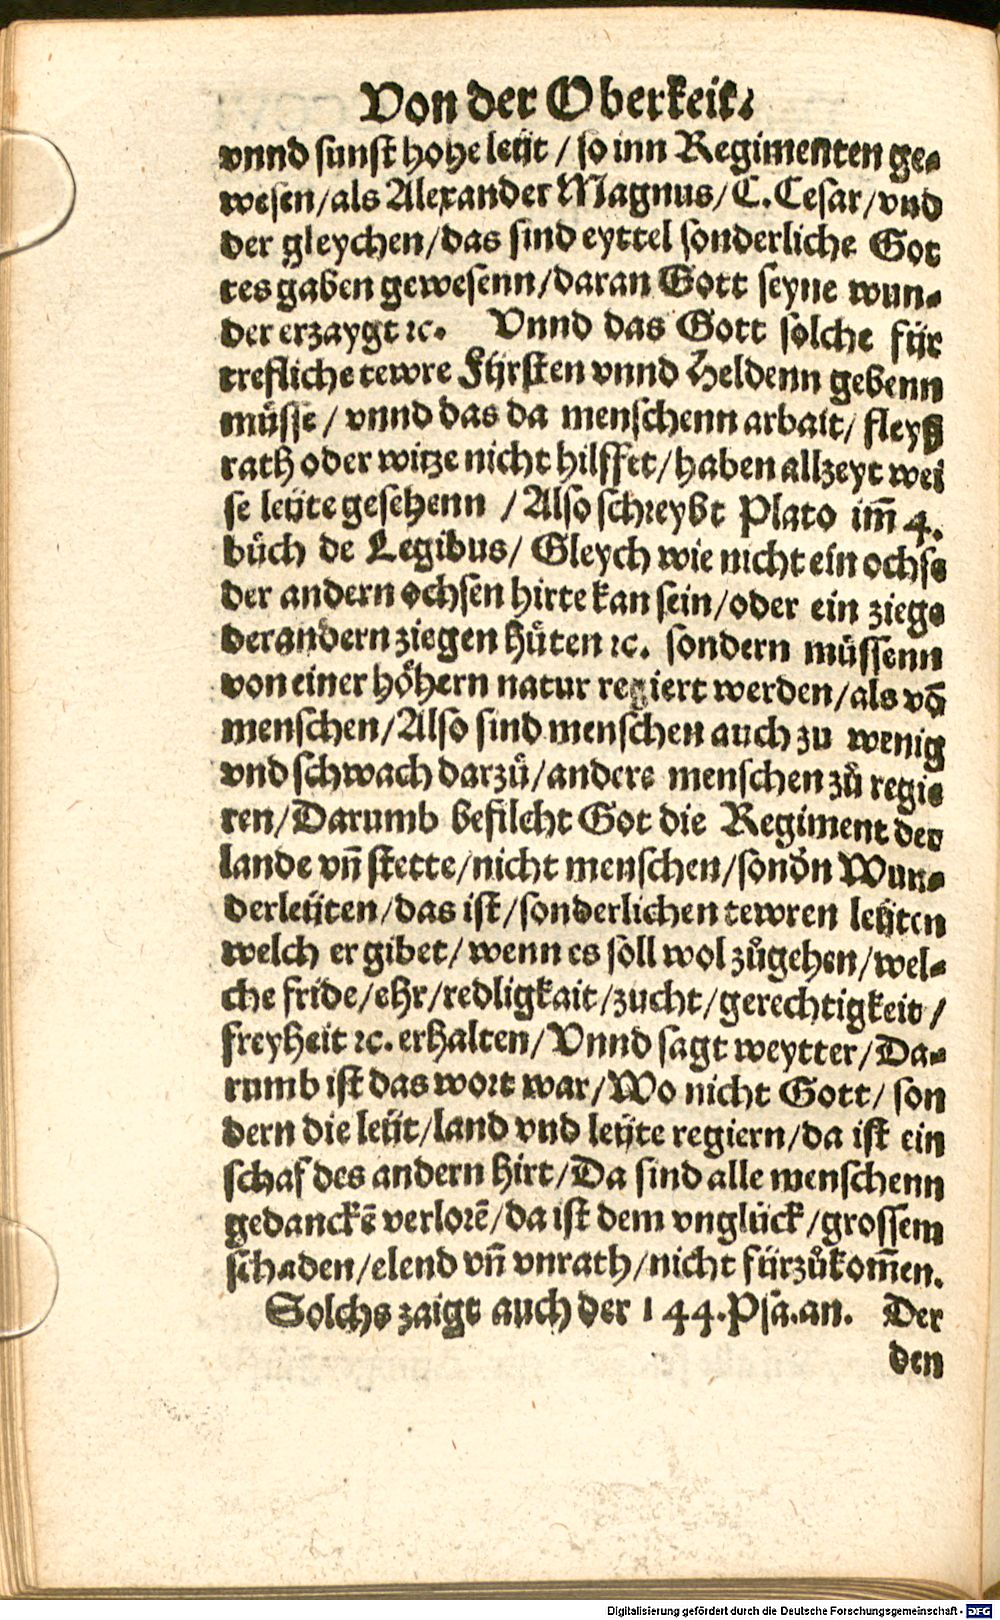 Von der Oberkeit.
vnnd sunst hohe leüt / so inn Regimenten ge-
wesen/als Alexander Magnus/C.Cesar/vnd
der gleychen/das sind eyttel sonderliche Got
tes gaben gewesenn/daran Gott seyne wun-
der erzaygt ꝛc. Vnnd das Gott solche für
trefliche tewre Fürsten vnnd Heldenn gebenn
müsse / vnnd das da menschenn arbait/ fleyß
rath oder witze nicht hilffet/haben allzeyt wei
se leüte gesehenn /Also schreybt Plato im̄ 4.
büch de Legibus/ Gleych wie nicht ein ochse
der andern ochsen hirte kan sein/oder ein ziege
der andern ziegen hüten ꝛc. sondern müssenn
von einer höhern natur regiert werden/als vō
menschen/Also sind menschen auch zu wenig
vnd schwach darzů/andere menschen zů regie
ren/Darumb befilcht Got die Regiment der
lande vn̄ stette/nicht menschen/sonđn Wun-
derleüten/das ist/sonderlichen tewren leüten
welch er gibet/wenn es soll wol zůgehen/wel-
che fride/ehr/redligkait/zucht/gerechtigkeit/
freyheit ꝛc.erhalten/Vnnd sagt weytter/Da-
rumb ist das wort war/Wo nicht Gott/ son
dern die leüt/land vnd leüte regiern/da ist ein
schaf des andern hirt/Da sind alle menschenn
gedanckē verlorē/da ist dem vnglück/grossem
schaden/elend vn̄ vnrath/nicht fürzůkom̄en.
Solchs zaigt auch der 144.Psa.an. Der
den
Digitalisierung gefördert durch die Deutsche Forschungsgemeinschaft - DFG